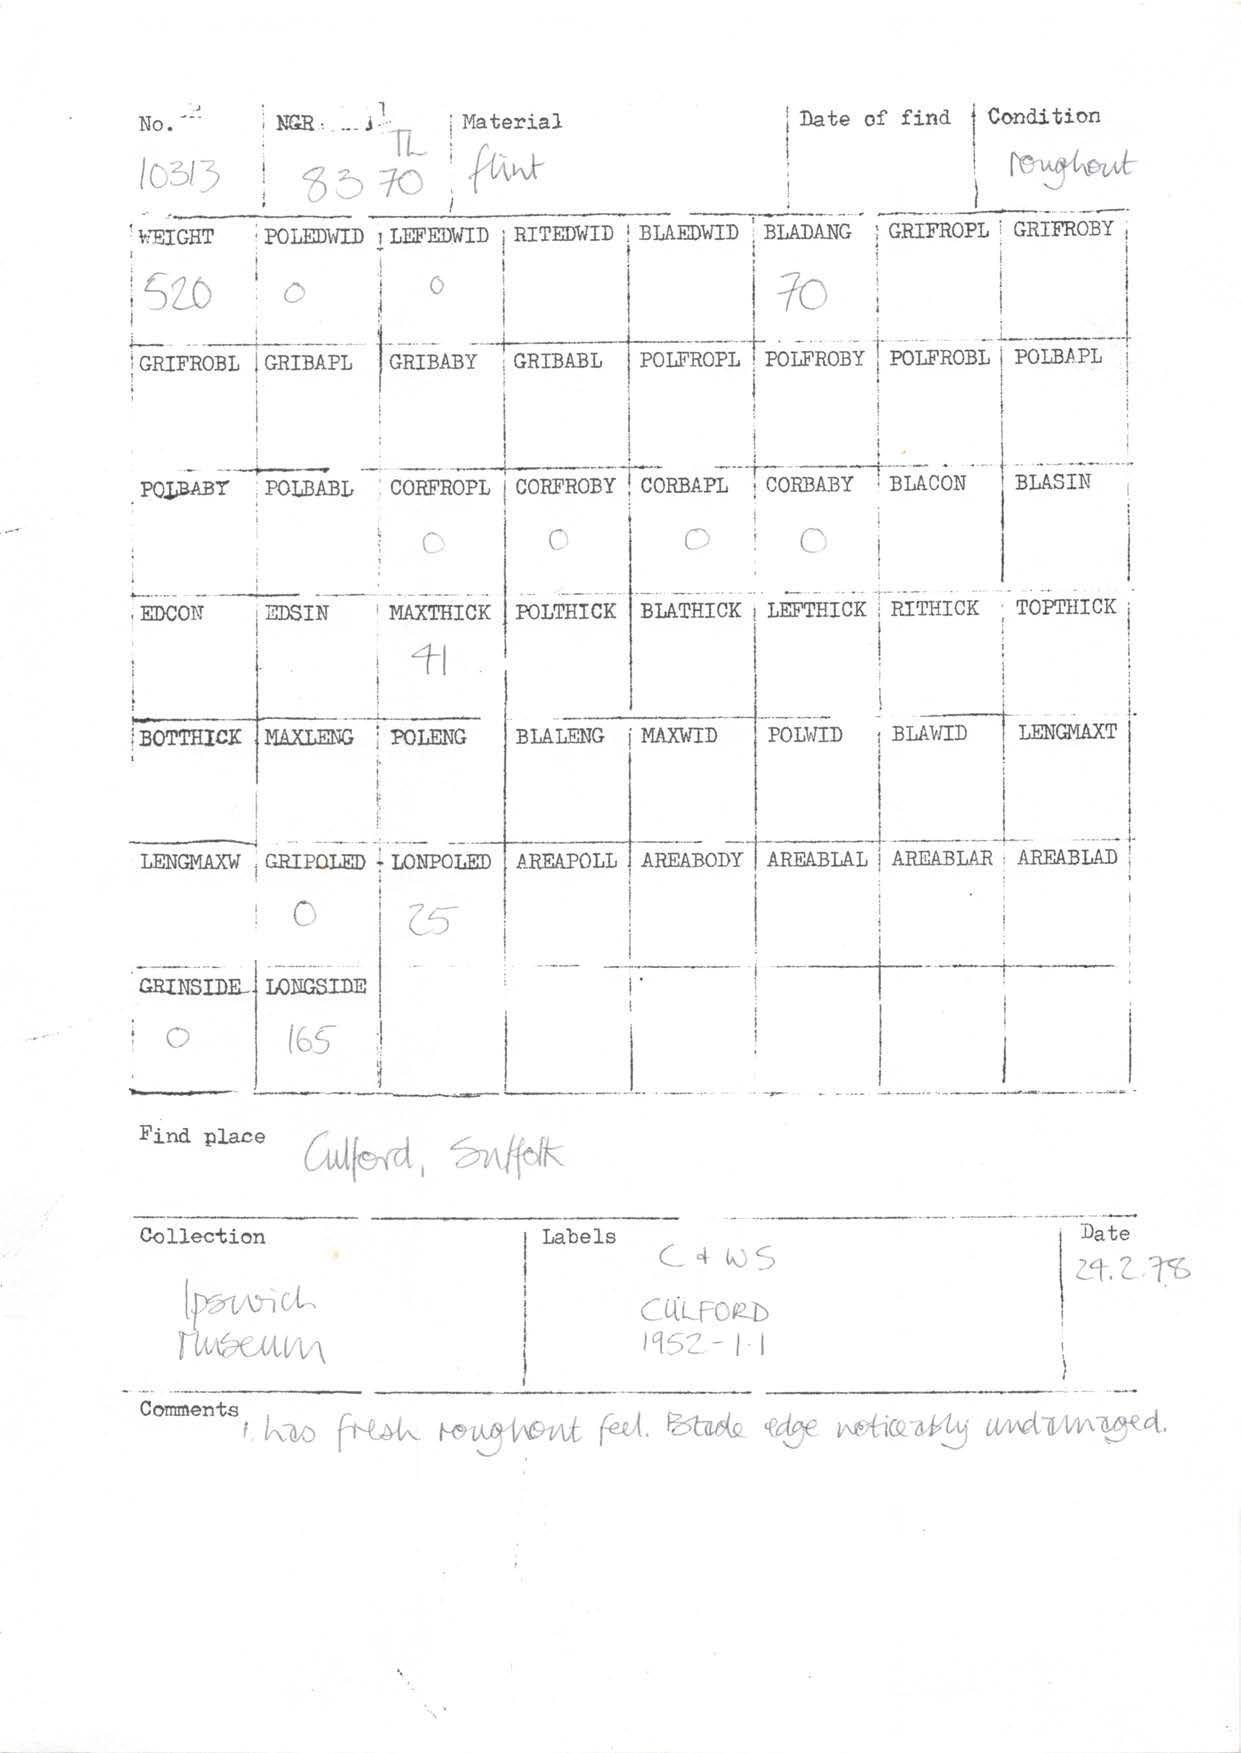 No. NGR. Material Date of find Condition
10313 TL 83 70 flint roughout
WEIGHT POLEDWID LEFEDWID RITEDWID BLAEDWID BLADANG GRIFROPL GRIFROBY
520 0 0 70
GRIFROBL GRIBAPL GRIBABY GRIBABL POLFROPL POLFROBY POLFROBL POLBAPL
POLBABY POLBABL CORFROPL CORFROBY CORBAPL CORBABY BLACON BLASIN
0 0 0 0
EDCON EDSIN MAXTHICK POLTHICK BLATHICK LEFTHICK RITHICK TOPTHICK
41
BOTTHICK MAXLENG POLENG BLALENG MAXWID POLWID BLAWID LENGMAXT
LENGMAXW GRIPOLED LONPOLED AREAPOLL AREABODY AREABLAL AREABLAR AREABLAD
0 25
GRINSIDE LONGSIDE
0 165
Find place Culford, Suffolk
Collection Labels Date
C & WS 24.2.78
Ipswich CULFORD
Museum 1952-1.1
Comments 1. has fresh roughout feel. Blade edge noticeably undamaged.